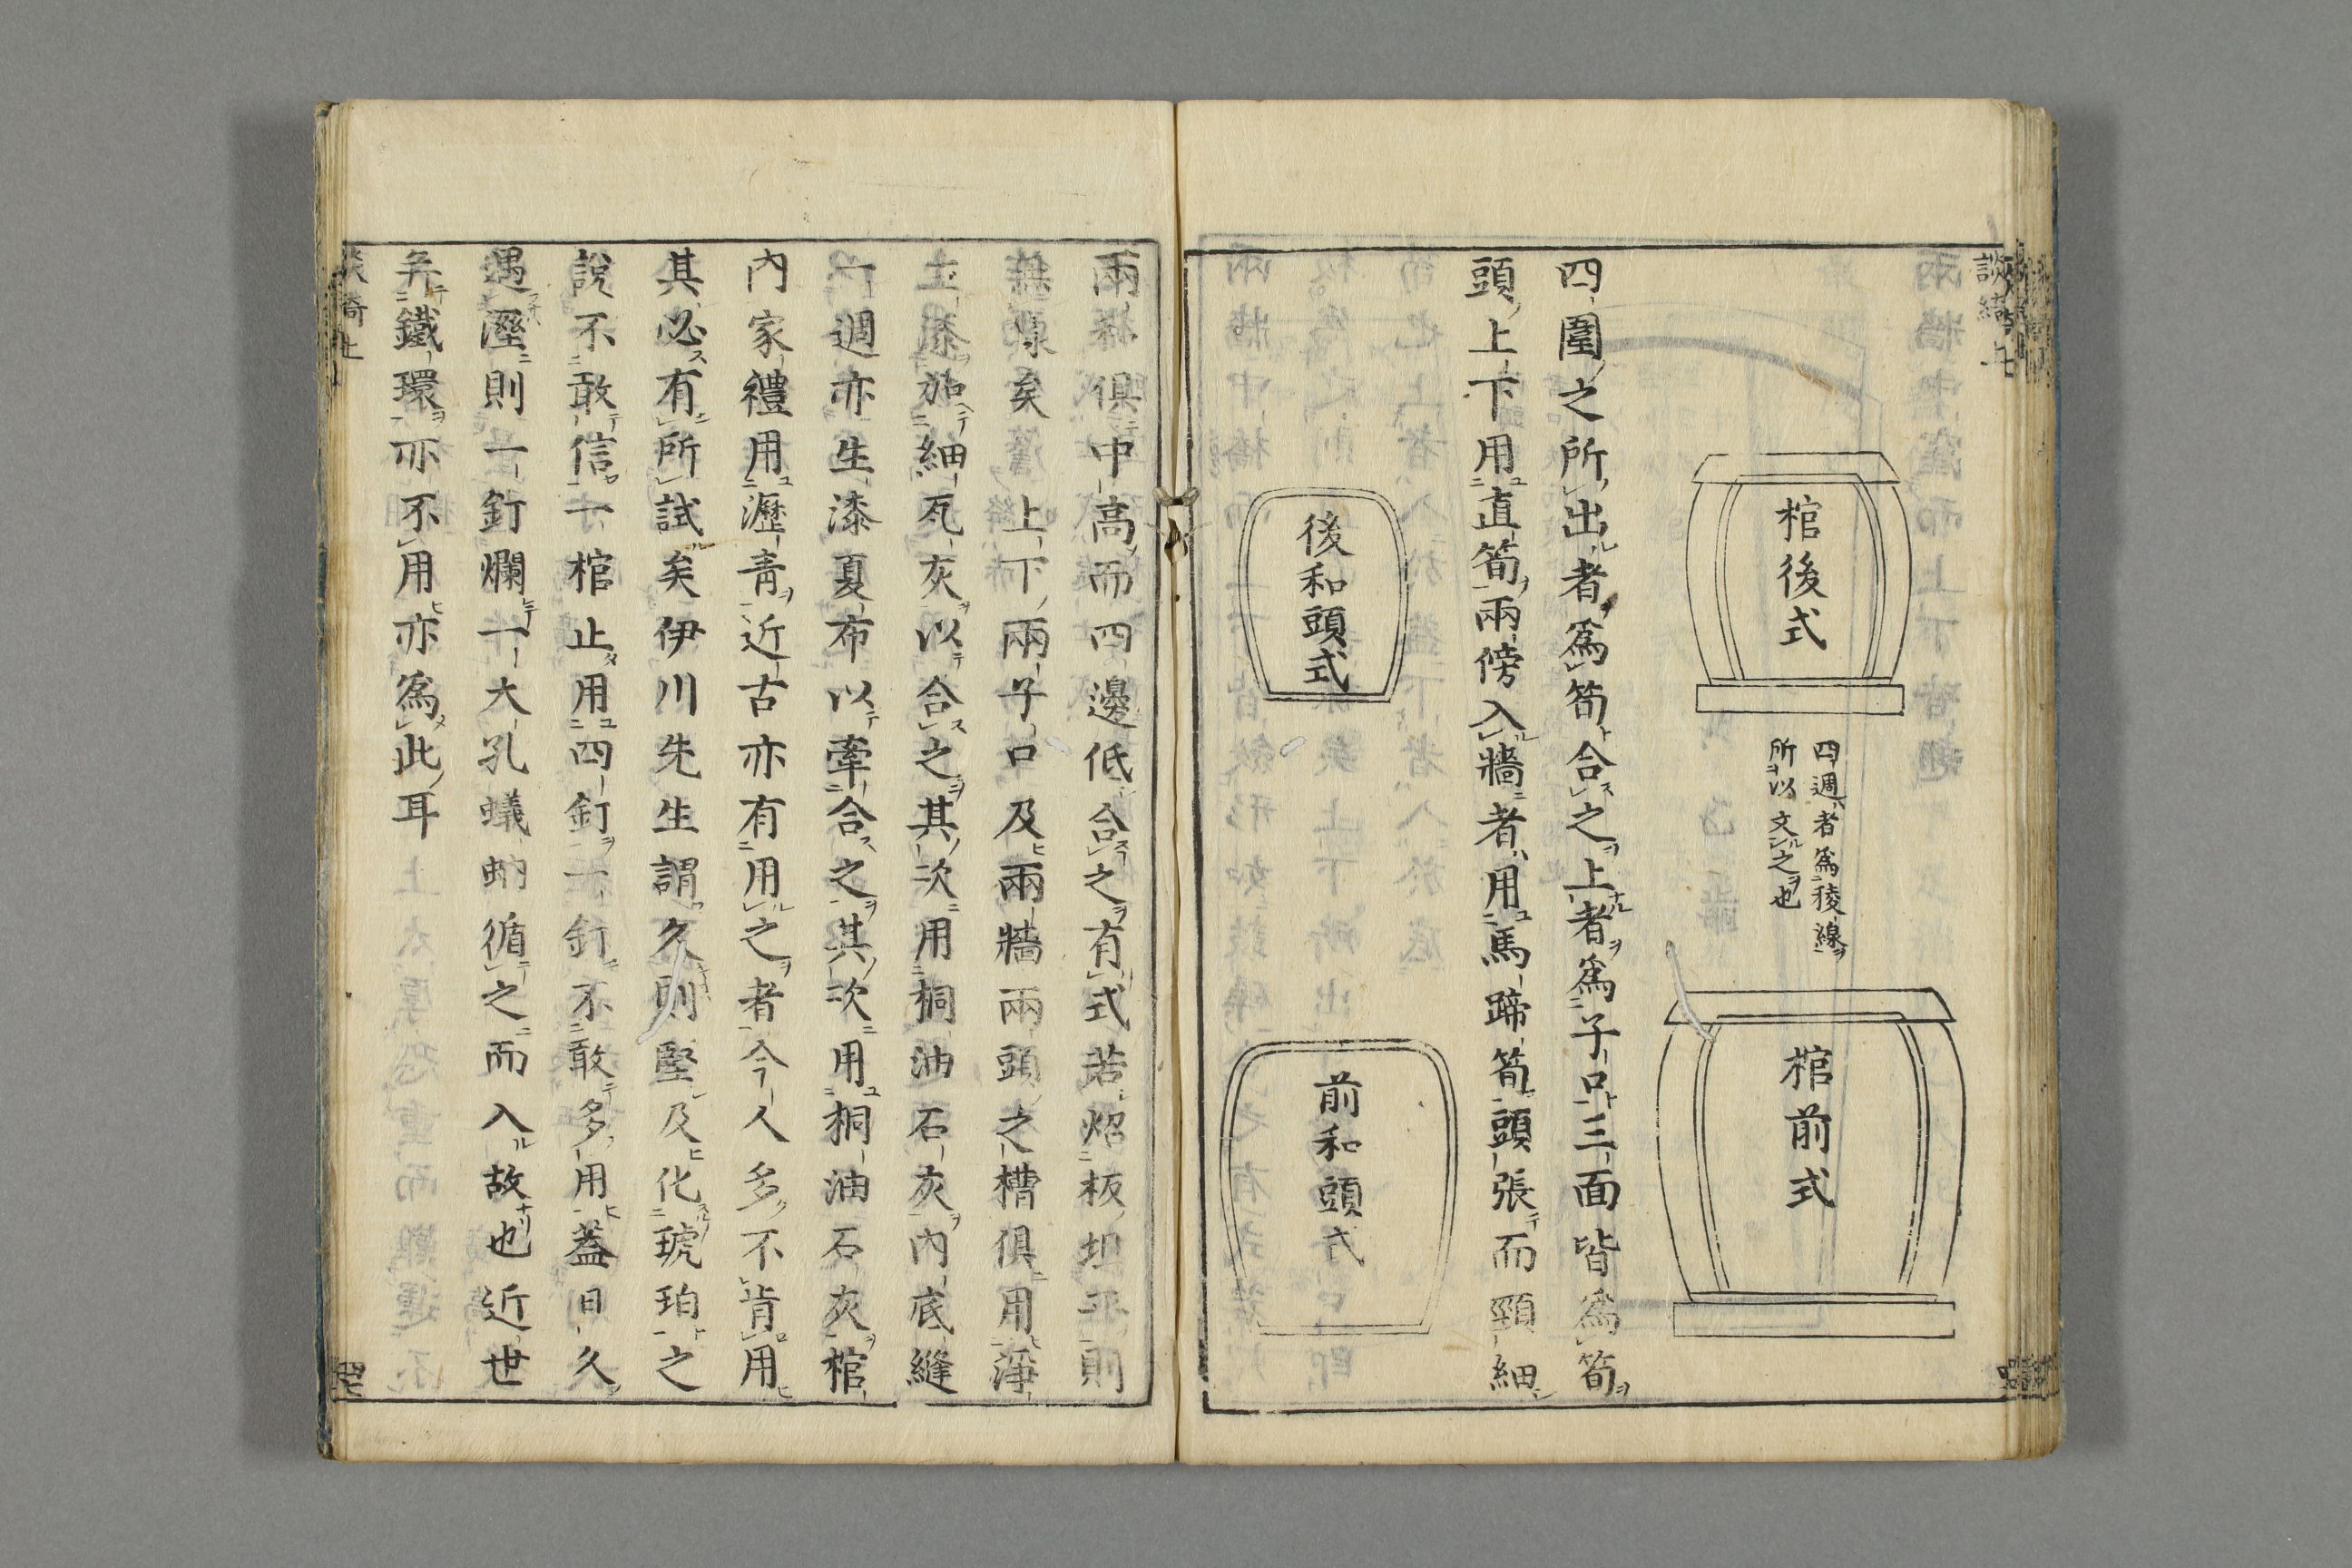 棺後式
四週者爲稜線
所以文之也
棺前式
四圍之所出者爲筍合之上者爲子口三面皆爲筍
頭上下用直筍兩傍入牆者用馬蹄筍頭張而頸細
後和頭式
前和頭式
兩樣俱中高而四邊低合之有式若炤板坦平則
無標矣上下兩子口及兩牆兩頭之槽俱用淨
生漆加細瓦灰以合之其次用桐油石灰內底縫
一週亦生漆夏布以牽合之其次用桐油石灰棺
內家禮用瀝青近古亦有用之者今人多不肯用
其必有所試矣伊川先生謂久則堅及化琥珀之
說不敢信一棺止用四釘一釘不敢多用蓋日久
遇溼則一釘爛一大孔蟻蚋循之而入故也近世
弃鐵環亦不用亦爲此耳
談綺上